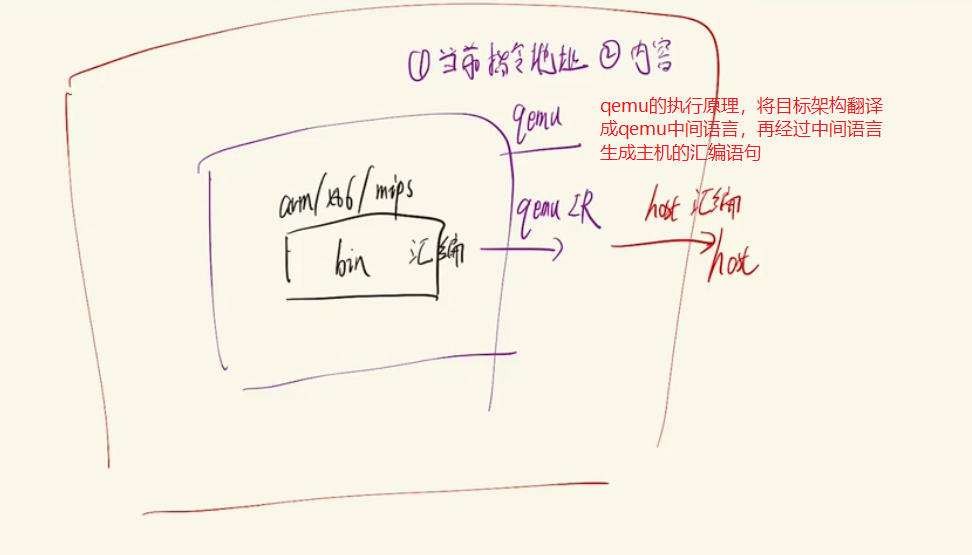 ①当前指令地址 ②内容
qemu
qemu的执行原理，将目标架构翻译
成qemu中间语言，再经过中间语言
生成主机的汇编语句
arm/x86/mips
qemu IR
host 汇编
bin 汇编
host